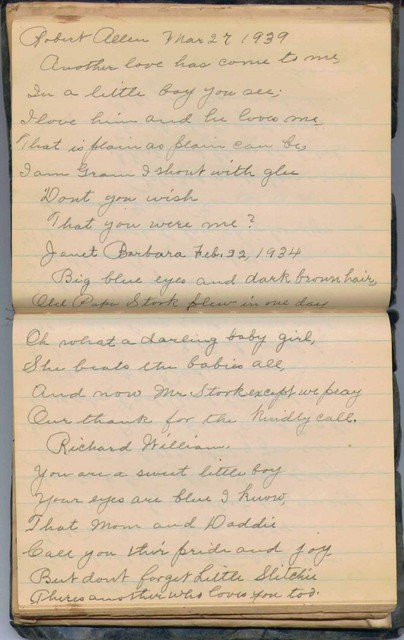 Robert Allen Mar 27 1939
Another love has come to me,
In a little boy you see;
I love him and he loves me,
That is plain as plain can be,
I am Gram I shout with glee
Dont you wish
That you were me?
Janet Barbara Feb. 22, 1934
Big blue eyes and dark brown hair,
Old Papa Stork flew in one day
Oh what a darling baby girl,
She beats the babies all,
And now Mr. Stork except we pray
Our thank for the kindly call.
Richard William.
You are a sweet little boy
Your eyes are blue I know,
That Mom and Daddie
Call you thir pride and joy
But dont forget Little
Theres another who loves you too.